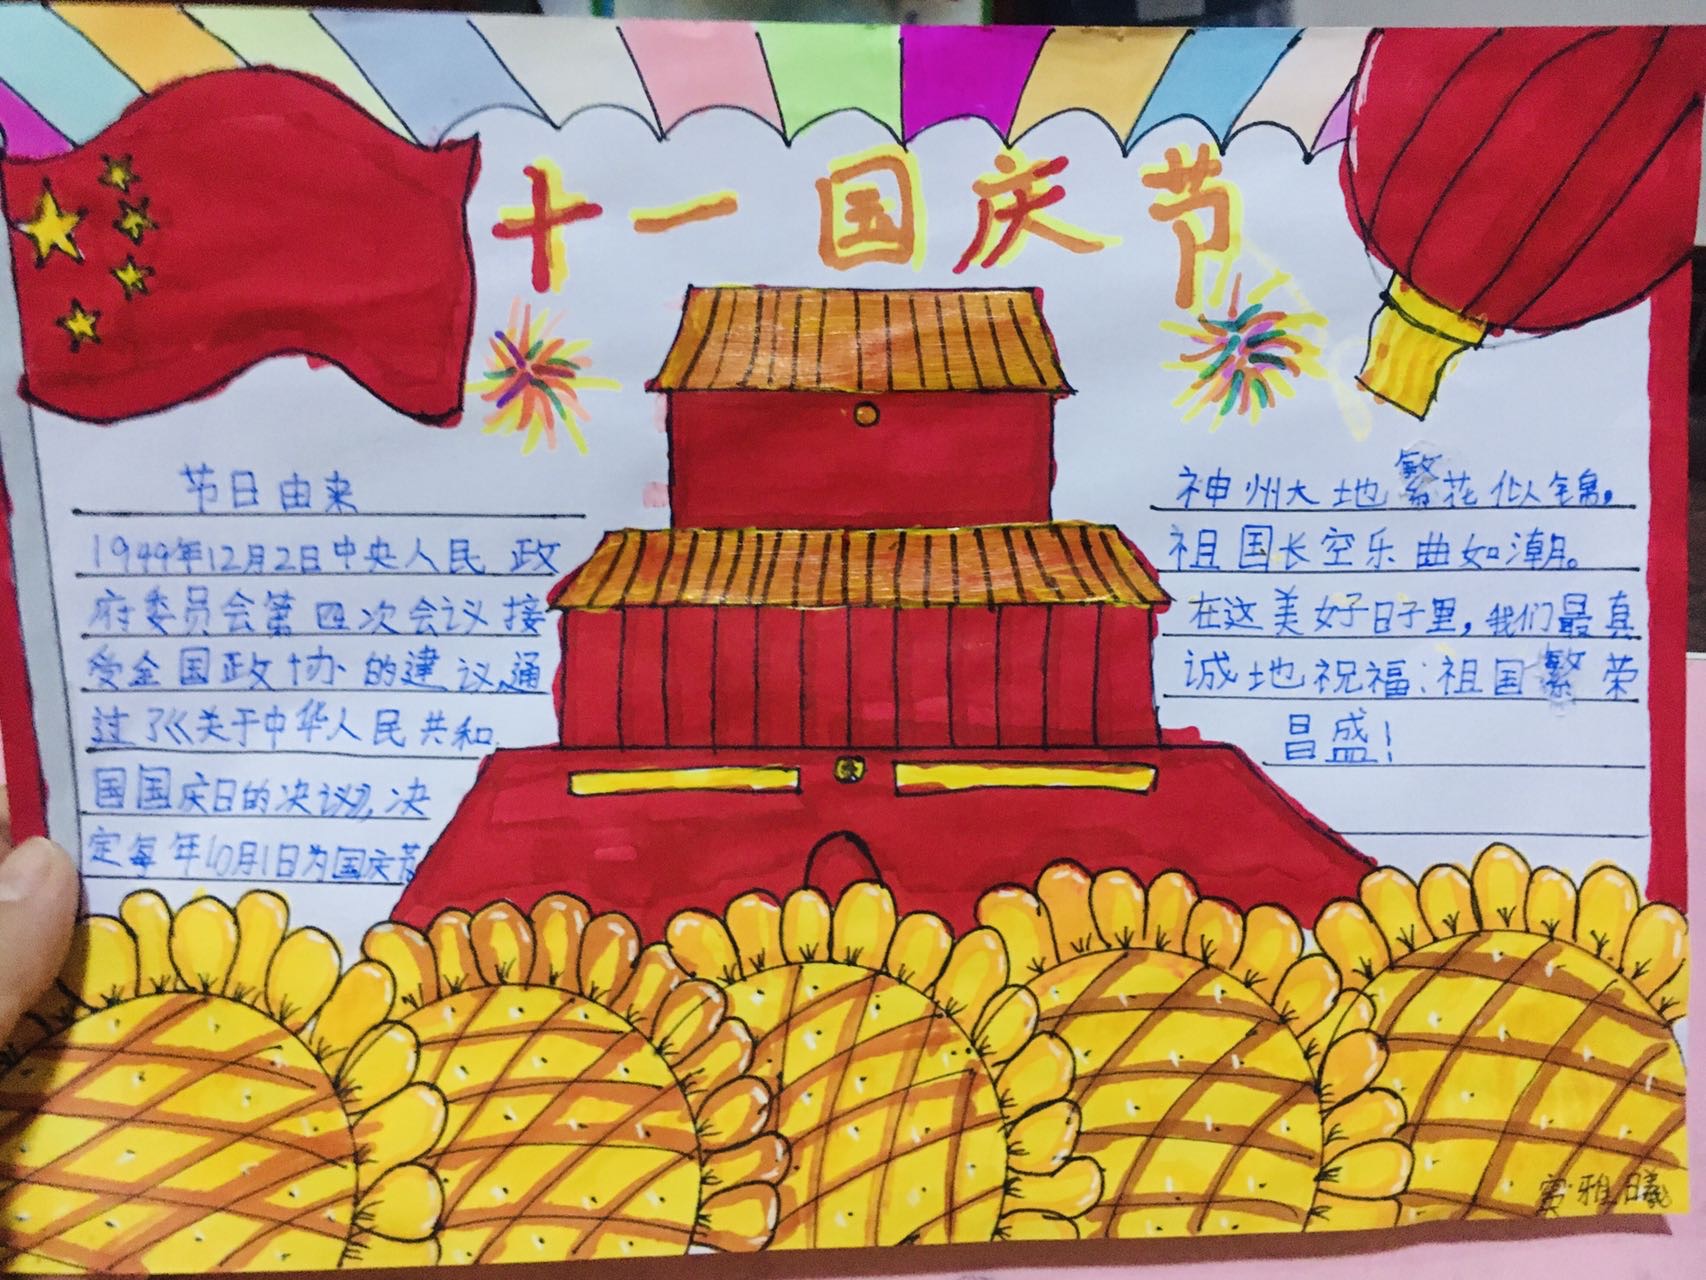 十一国庆节
节日由来
1949年12月2日中央人民政
府委员会第四次会议接
受全国政协的建议,通
过了《关于中华人民共和
国国庆日的决议》,决
定每年10月1日为国庆节
神州大地繁花似锦,
祖国长空乐曲如潮。
在这美好日子里,我们最真
诚地祝福:祖国繁荣
昌盛!
雅曦